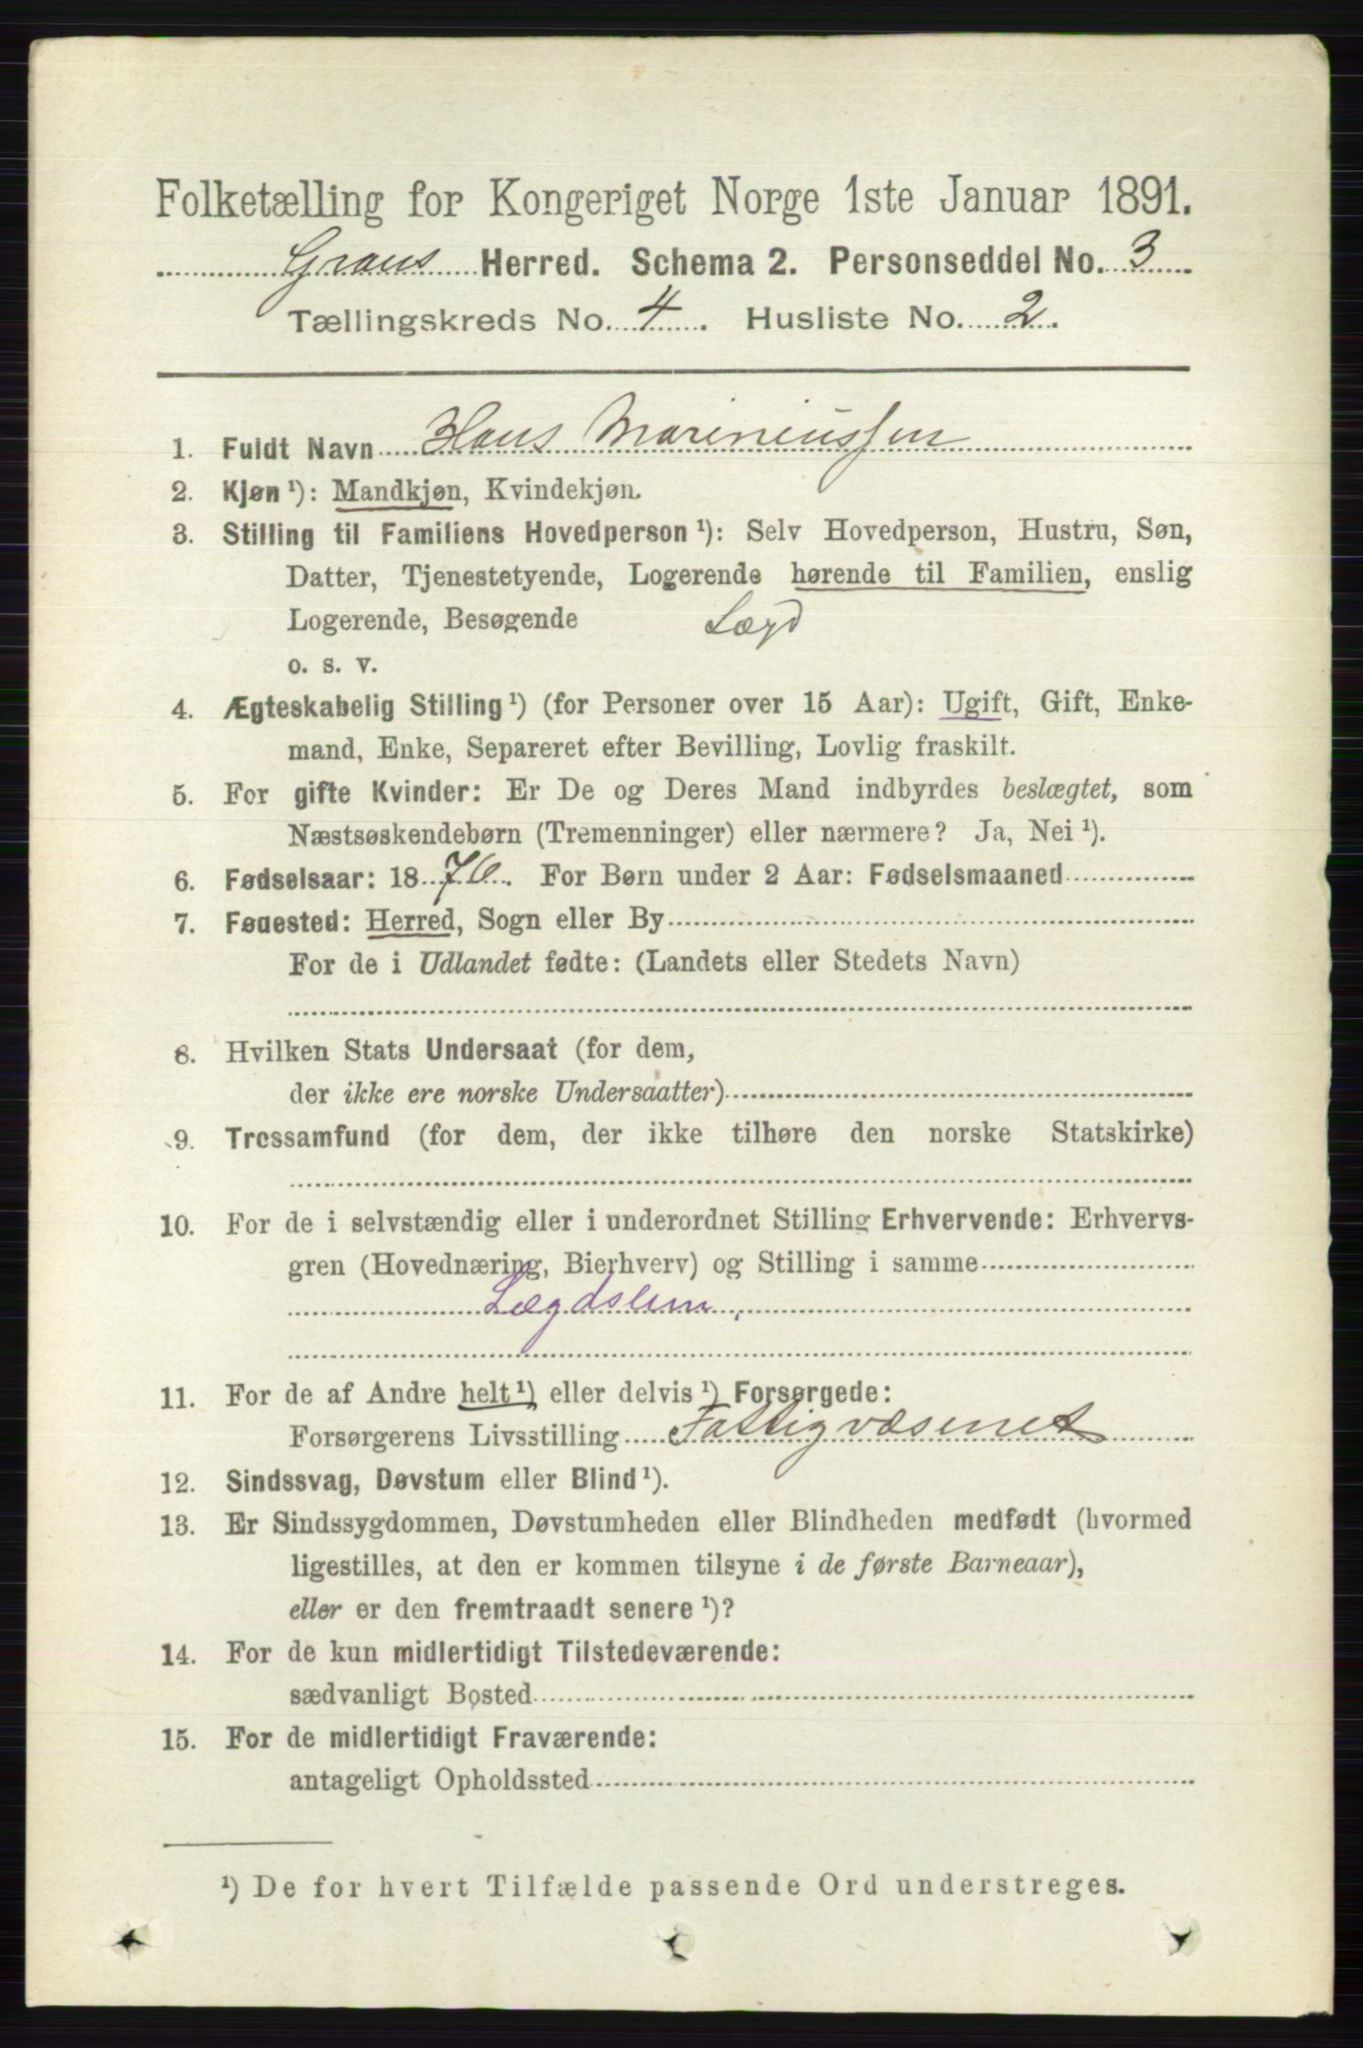 Folketælling for Kongeriget Norge 1ste Januar 1891.
Grans Herred. Schema 2. Personseddel No. 3
Tællingskreds No. 4. Husliste No. 2.
1. Fuldt Navn Hans Marineussen
2. Kjøn ¹): Mandkjøn, Kvindekjøn.
3. Stilling til Familiens Hovedperson ¹): Selv Hovedperson, Hustru, Søn,
Datter, Tjenestetyende, Logerende hørende til Familien, enslig
Logerende, Besøgende Lægd
o. s. v.
4. Ægteskabelig Stilling ¹) (for Personer over 15 Aar): Ugift, Gift, Enke-
mand, Enke, Separeret efter Bevilling, Lovlig fraskilt.
5. For gifte Kvinder: Er De og Deres Mand indbyrdes beslægtet, som
Næstsøskendebørn (Tremenninger) eller nærmere? Ja, Nei ¹).
6. Fødselsaar: 1876. For Børn under 2 Aar: Fødselsmaaned
7. Fødested: Herred, Sogn eller By
For de i Udlandet fødte: (Landets eller Stedets Navn)
8. Hvilken Stats Undersaat (for dem,
der ikke ere norske Undersaatter)
9. Trossamfund (for dem, der ikke tilhøre den norske Statskirke)
10. For de i selvstændig eller i underordnet Stilling Erhvervende: Erhvervs-
gren (Hovednæring, Bierhverv) og Stilling i samme
Lægdslem,
11. For de af Andre helt ¹) eller delvis ¹) Forsørgede:
Forsørgerens Livsstilling Fattigvæsenet
12. Sindssvag, Døvstum eller Blind ¹).
13. Er Sindssygdommen, Døvstumheden eller Blindheden medfødt (hvormed
ligestilles, at den er kommen tilsyne i de første Barneaar),
eller er den fremtraadt senere ¹)?
14. For de kun midlertidigt Tilstedeværende:
sædvanligt Bosted
15. For de midlertidigt Fraværende:
antageligt Opholdssted
¹) De for hvert Tilfælde passende Ord understreges.